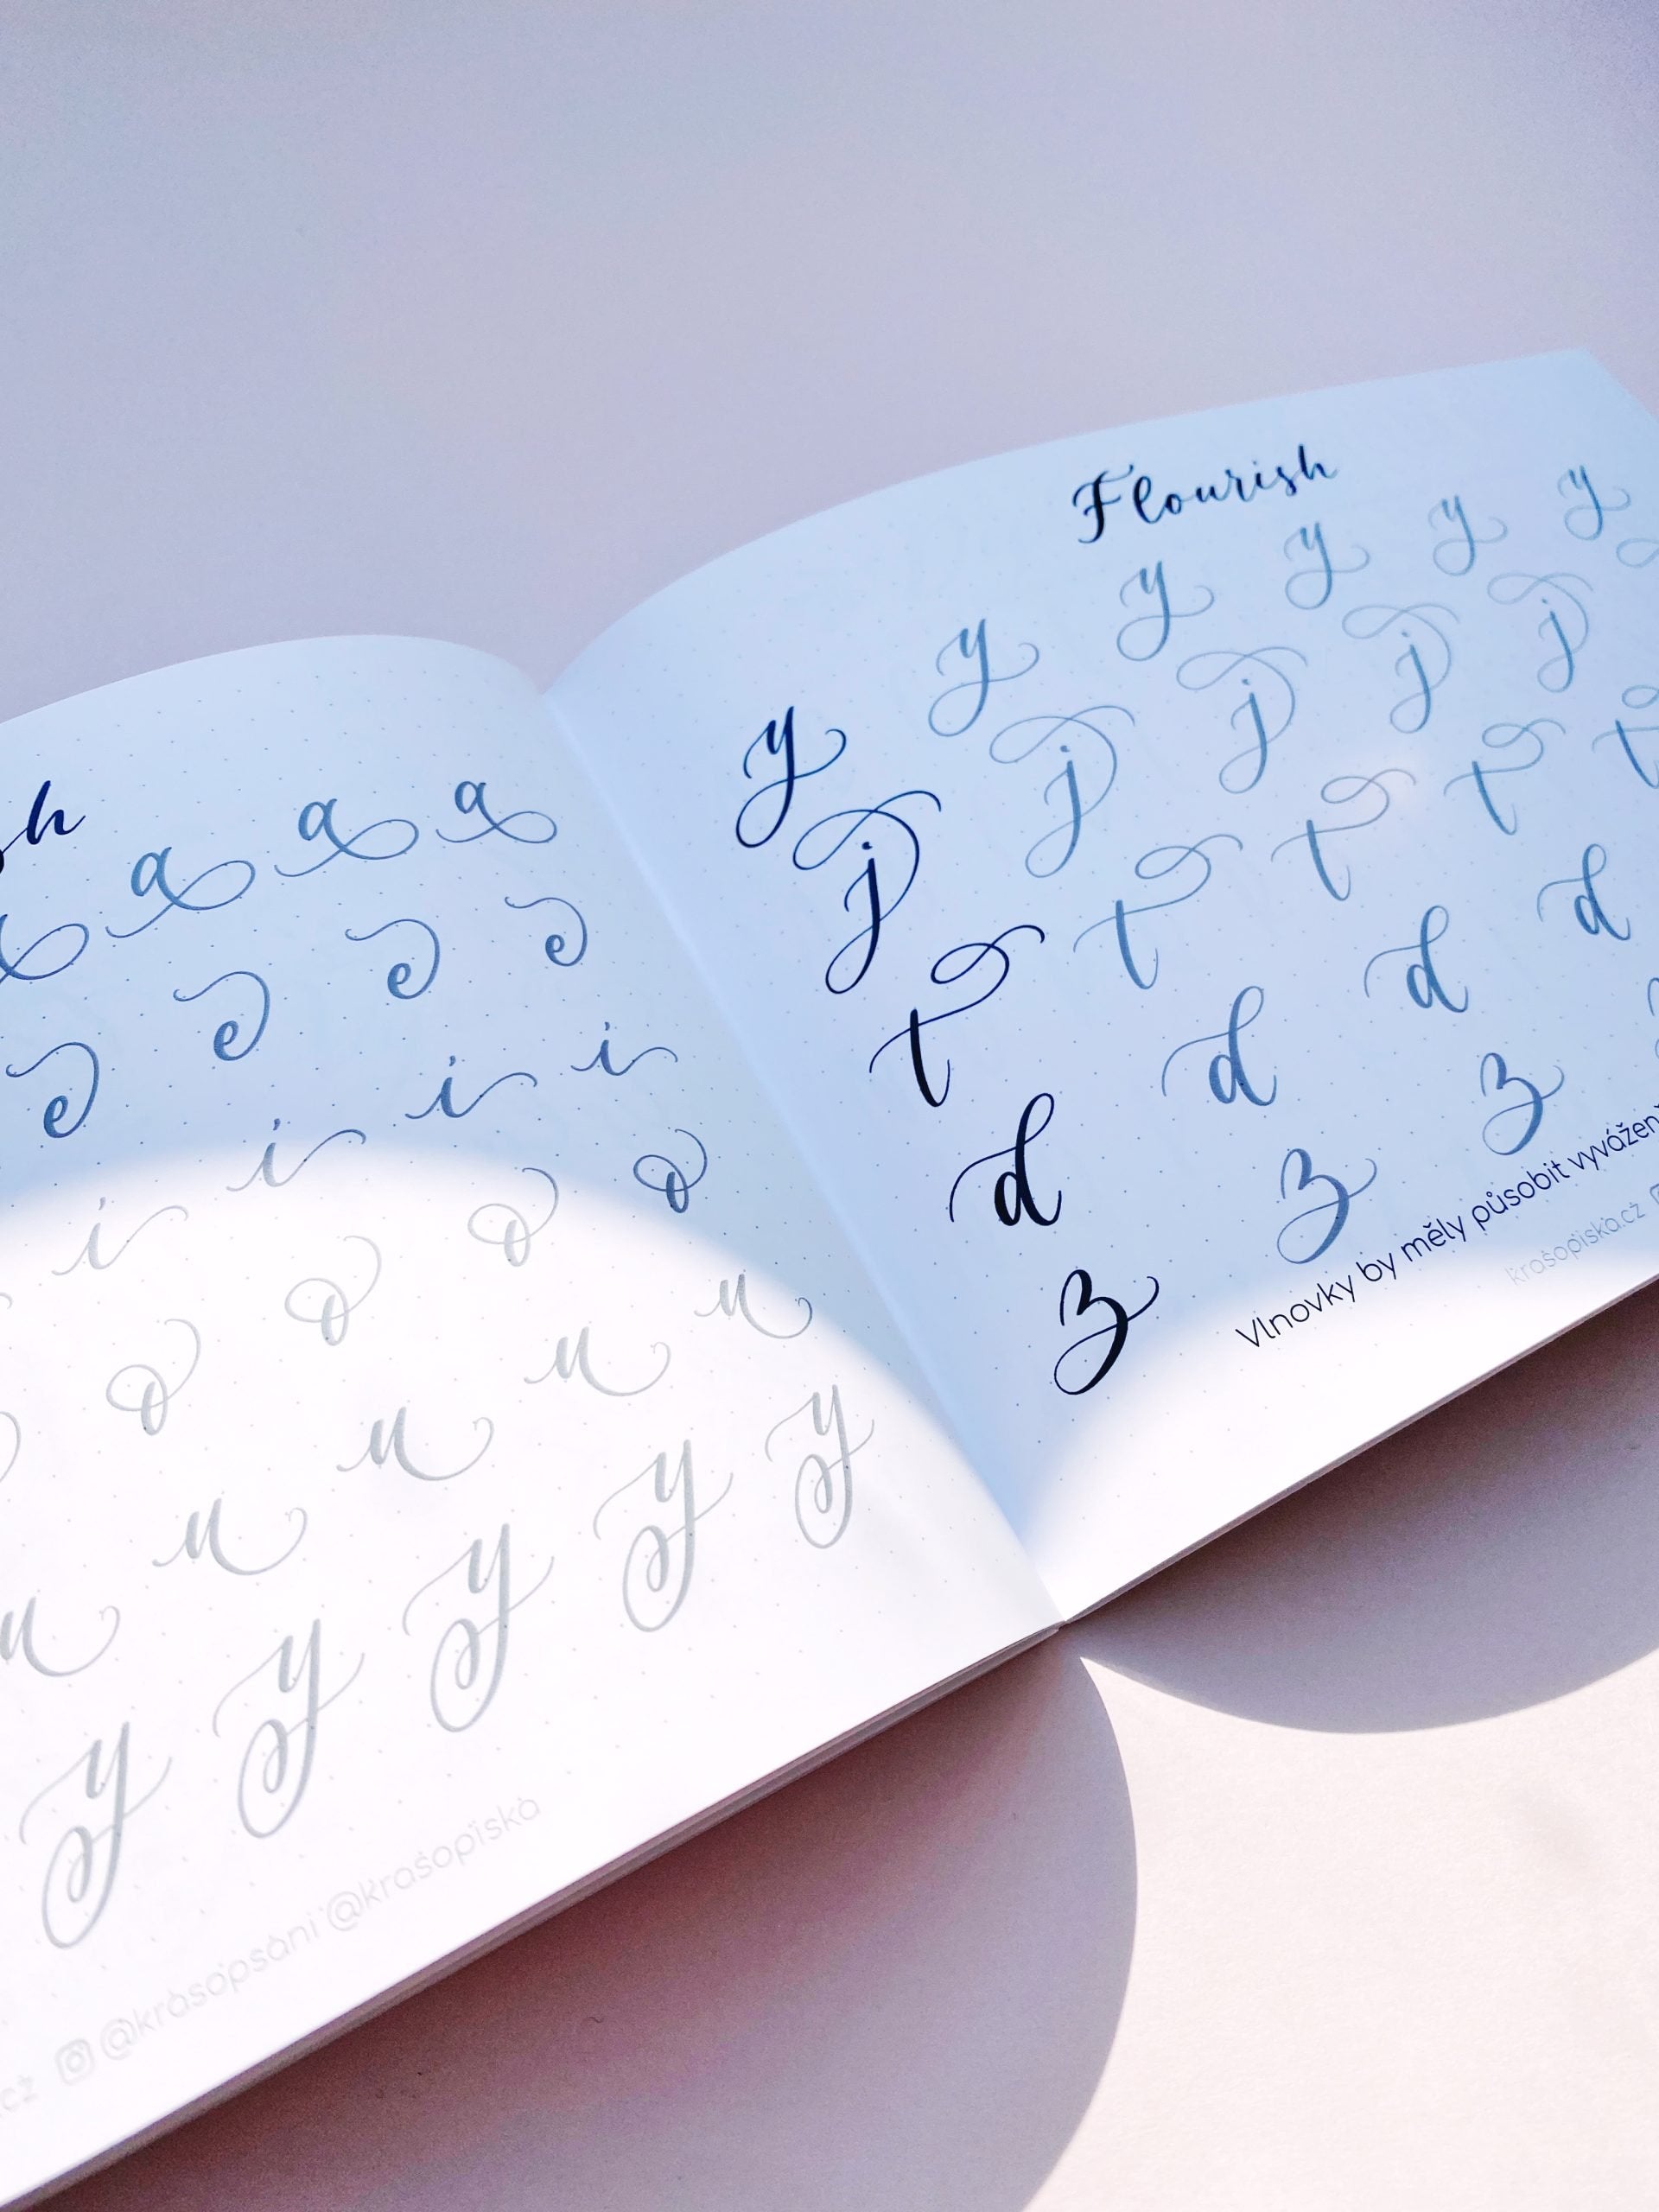 a a a
e e e e
i i i i
o o o o
u u u u u
y y y y y
@krasopsani @krasopiska
Flourish
y y y y y y
j j j j j
t t t t t
d d d d
z z z
Vlnovky by měly působit vyvážen
krasopiska.cz